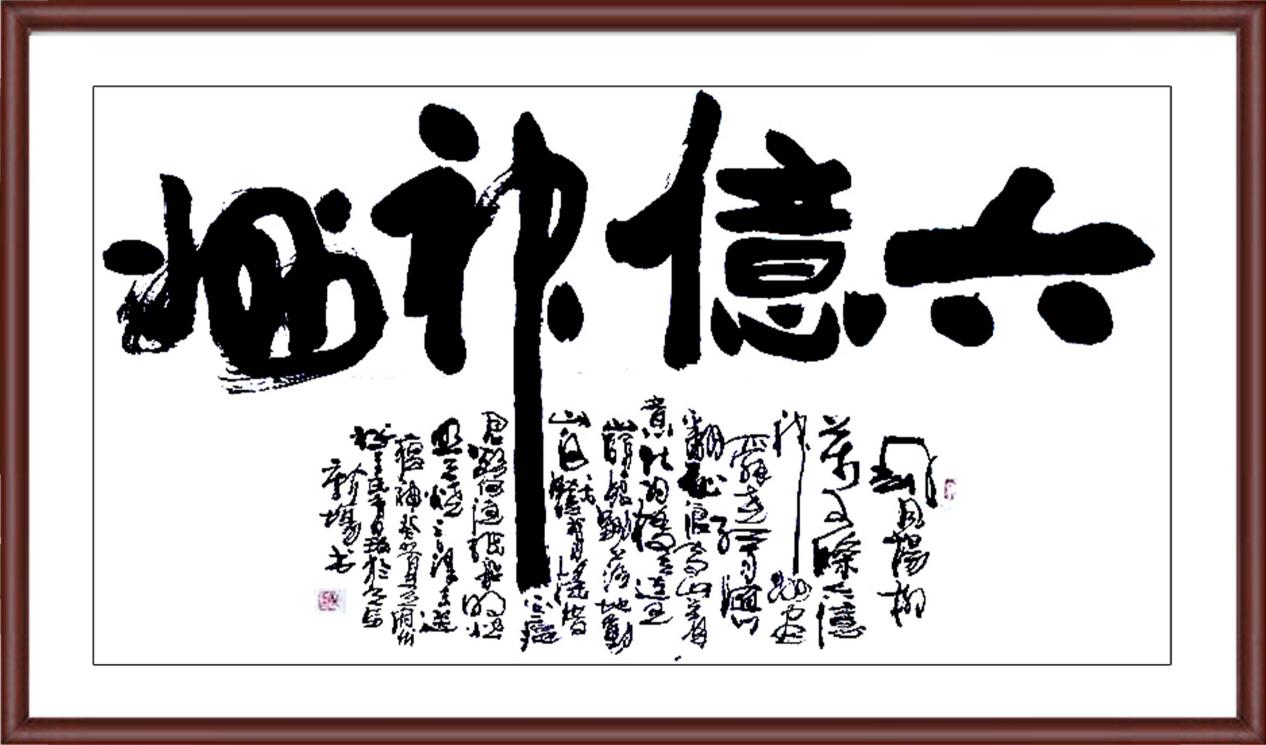 六億神州
春風楊柳
萬千條六億
神州盡
舜堯紅雨隨心
翻作浪青山着
意化為橋天連五
嶺銀鋤落地動
三河鐵臂搖借
問瘟
君欲何往紙船明燭
照天燒
瘟神
書